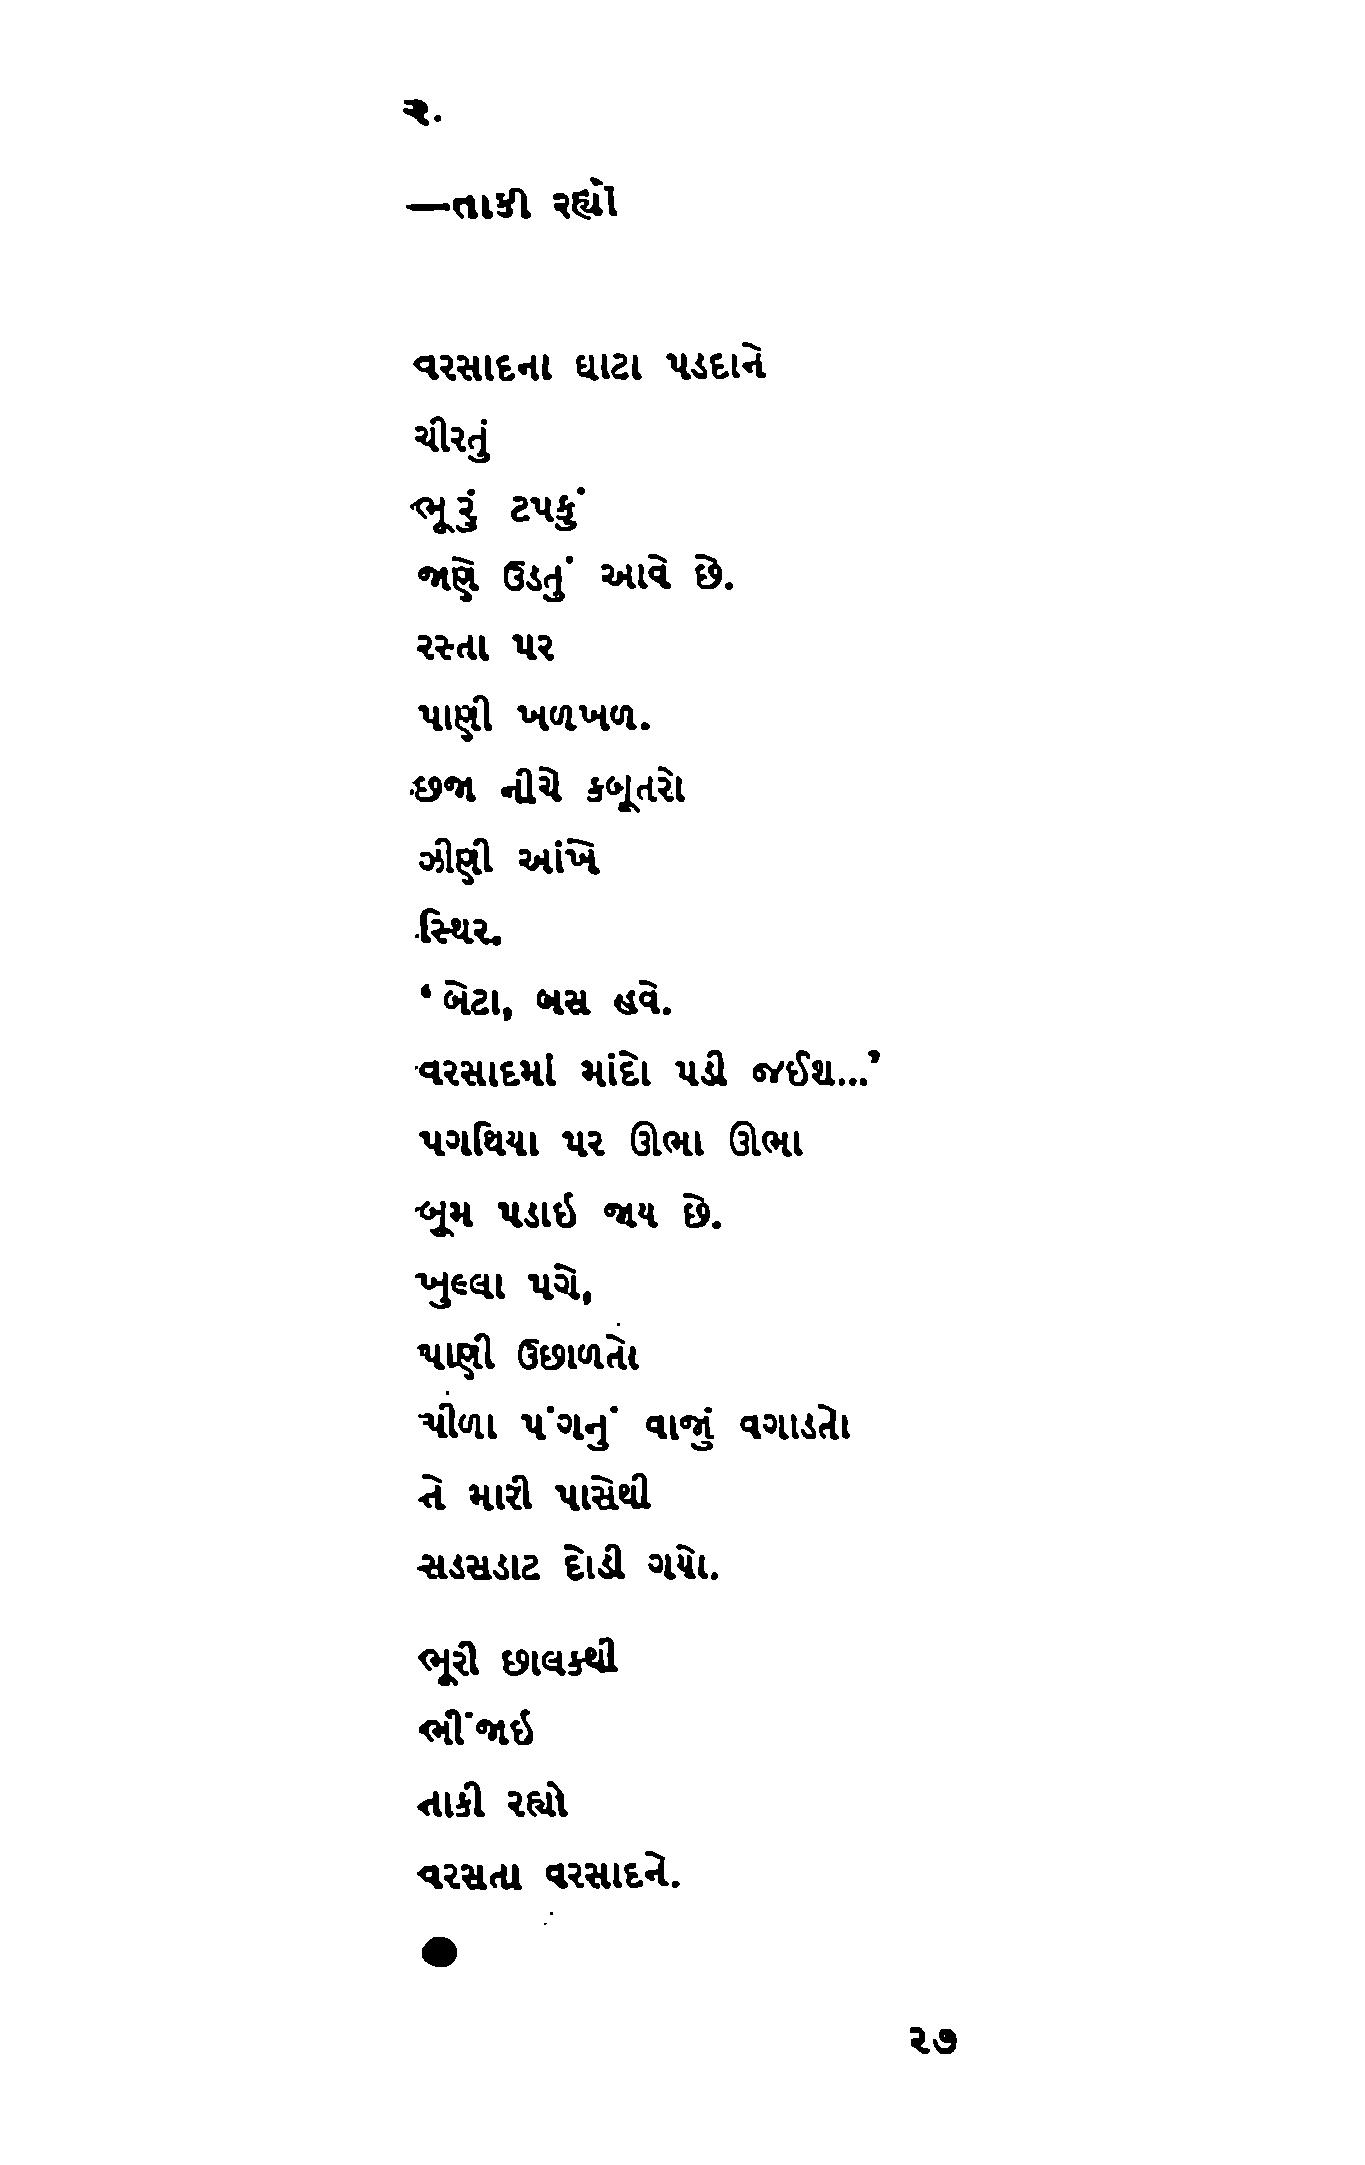 ૨.
—તાકી રહ્યો
વરસાદના ઘાટા પડદાને
ચીરતું
ભૂરું ટપકું
જાણે ઉડતું આવે છે.
રસ્તા પર
પાણી ખળખળ.
છજા નીચે કબૂતરો
ઝીણી આંખે
સ્થિર.
‘બેટા, બસ હવે.
વરસાદમાં માંદો પડી જઈશ...’
પગથિયા પર ઊભા ઊભા
બૂમ પડાઇ જાય છે.
ખુલ્લા પગે,
પાણી ઉછાળતો
પીળા પંગનું વાજું વગાડતો
તે મારી પાસેથી
સડસડાટ દોડી ગયો.
ભૂરી છાલકથી
ભીંજાઇ
તાકી રહ્યો
વરસતા વરસાદને.
૨૭